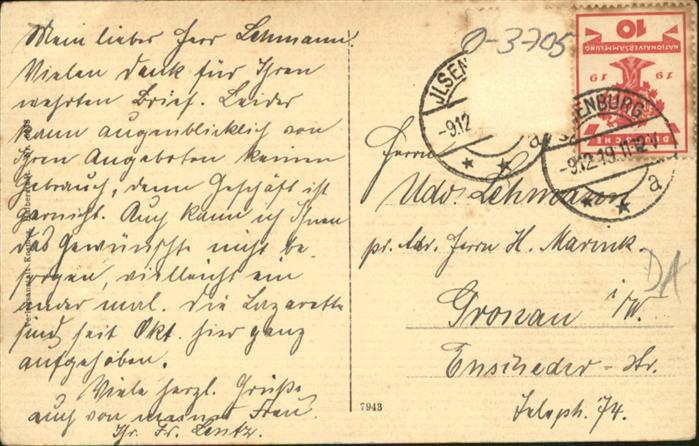 Mein lieber Herr Lehmann!
Vielen Dank für Ihren
werten Brief. Leider
kann augenblicklich von
Ihren Angeboten keinen
Gebrauch, denn Geschäft ist
garnicht. Auch kann ich Ihnen
das Gewünschte nicht be-
sorgen, vielleicht ein
ander mal. Die Lazarette
sind seit Okt. hier ganz
aufgehoben.
Viele herzl. Grüße
auch von meiner Frau.
Ihr Fr. Lentz.
7943
0-3705
JLSEN
-9.12
a
DEUTSCHE
19 19
NATIONALVERSAMMLUNG
10
ENBURG
-9.12.19.11-12V.
a
Herrn
Udo Lehmann
pr. Adr. Herrn H. Marink.
Gronau i/W.
Enscheder-Str.
Teleph. 74.
DA